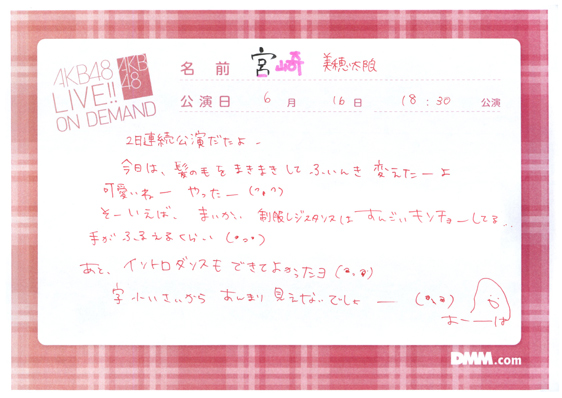 AKB48
LIVE!!
ON DEMAND
AKB
48
名前 宮崎 美穂大阪
公演日 6月 16日 18:30 公演
2日連続公演だたよー
今日は、髪の毛をまきまきして ふいんき 変えたーよ
可愛いねー やったー (^o^)
そーいえば、まいかい 制服レジスタンスは すんごいキンチョーしてる…
手がふるえるくらい
あと、イントロダンスもできてよかったヨ
字 小いさいから あんまり見えないでしょー
みーーほ
DMM.com